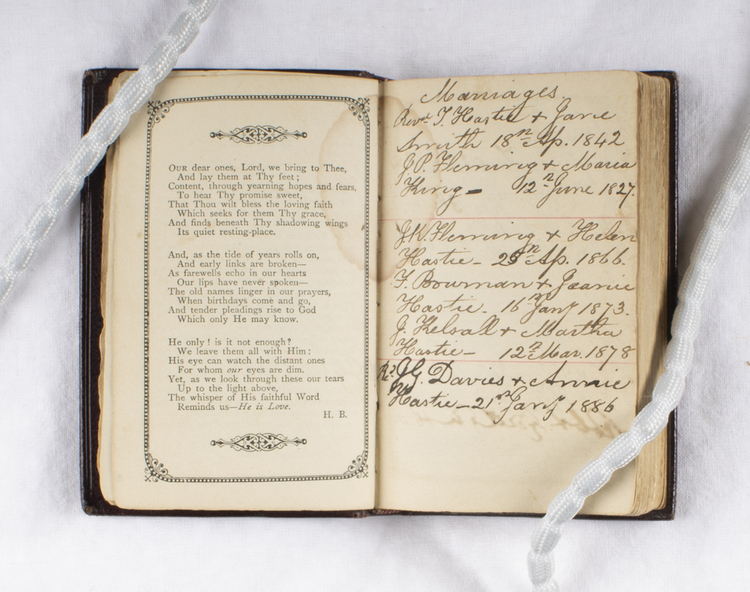 OUR dear ones, Lord, we bring to Thee,
And lay them at Thy feet;
Content, through yearning hopes and fears,
To hear Thy promise sweet,
That Thou wilt bless the loving faith
Which seeks for them Thy grace,
And finds beneath Thy shadowing wings
Its quiet resting-place.
And, as the tide of years rolls on,
And early links are broken—
As farewells echo in our hearts
Our lips have never spoken—
The old names linger in our prayers,
When birthdays come and go,
And tender pleadings rise to God
Which only He may know.
He only! is it not enough?
We leave them all with Him:
His eye can watch the distant ones
For whom our eyes are dim.
Yet, as we look through these our tears
Up to the light above,
The whisper of His faithful Word
Reminds us—He is Love.
H. B.
Marriages.
Revd. T. Hastie & Jane
Smith 18th Ap. 1842
J. P. Fleming & Maria
King - 12th June 1827.
J. W. Fleming & Helen
Hastie - 25th Ap. 1866.
T. Bowman & Jeanie
Hastie - 16th Jany 1873.
J. Kelsall & Martha
Hastie - 12th Mar. 1878
J. G. Davies & Annie
Hastie - 21st Jany 1886